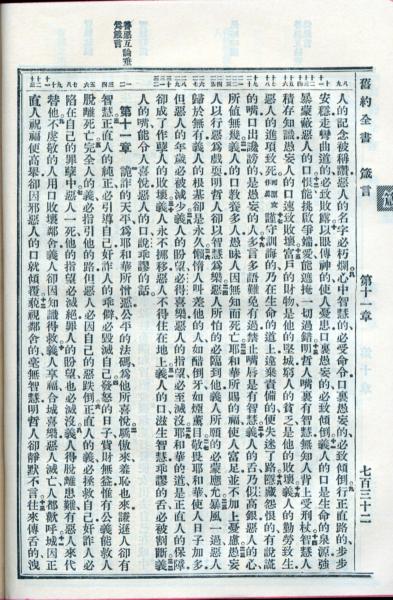 舊約全書 箴言 第十一章 七百三十二
人的記念被稱讚惡人的名字必朽爛心中智慧的必受命令口裏愚妄的必致傾倒行正直路的步步
安穩走彎曲道的必致敗露以眼傳神的使人憂患口裏愚妄的必致傾倒義人的口是生命的泉源強
暴蒙蔽惡人的口恨能挑啟爭端愛能遮掩一切過錯明哲人嘴裏有智慧無知人背上受刑杖智慧人
積存知識愚妄人的口速致敗壞富戶的財物是他的堅城窮人的貧乏是他的敗壞義人的勤勞致生
惡人的進項致死謹守訓誨的乃在生命的道上違棄責備的便失迷了路隱藏怨恨的有說謊
的嘴口出讒謗的是愚妄的人多言多語難免有過禁止嘴唇是有智慧義人的舌乃似高銀惡人的心
所值無幾義人的口教養多人愚昧人因無知而死亡耶和華所賜的福使人富足並不加上憂慮愚妄
人以行惡為戲耍明哲人卻以智慧為樂惡人所怕的必臨到他義人所願的必蒙應允暴風一過惡人
歸於無有義人的根基卻是永久懶惰人叫差他的人如醋倒牙如煙薰目敬畏耶和華使人日子加多
但惡人的年歲必被減少義人的盼望必得喜樂惡人的指望必至滅沒耶和華的道是正直人的保障
卻成了作孽人的敗壞義人永不挪移惡人不得住在地上義人的口滋生智慧乖謬的舌必被割斷義
人的嘴能令人喜悅惡人的口說乖謬的話
善惡互論垂
為箴言
第十一章 詭詐的天平為耶和華所憎惡公平的法碼為他所喜悅驕傲來羞恥也來謙遜人卻有
智慧正直人的純正必引導自己奸詐人的乖僻必毀滅自己發怒的日子貲財無益惟有公義能救人
脫離死亡完全人的義必指引他的路但惡人必因自己的惡跌倒正直人的義必拯救自己奸詐人必
陷在自己的罪孽中惡人一死他的指望必滅絕罪人的盼望也必滅沒義人得脫離患難有惡人來代
替他不虔敬的人用口敗壞鄰舍義人卻因知識得救義人享福合城喜樂惡人滅亡人都歡呼城因正
直人祝福便高舉卻因邪惡人的口就傾覆藐視鄰舍的毫無智慧明哲人卻靜默不言往來傳舌的洩